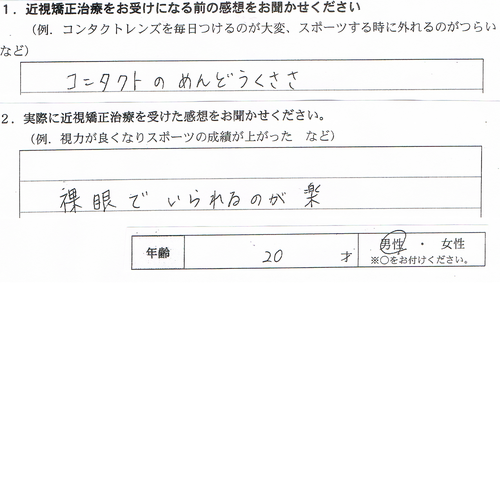 １．近視矯正治療をお受けになる前の感想をお聞かせください
（例．コンタクトレンズを毎日つけるのが大変、スポーツする時に外れるのがつらい
など）
コンタクトのめんどうくささ
２．実際に近視矯正治療を受けた感想をお聞かせください。
（例．視力が良くなりスポーツの成績が上がった　など）
裸眼でいられるのが楽
年齢　20　才　男性　・　女性
※○をお付けください。